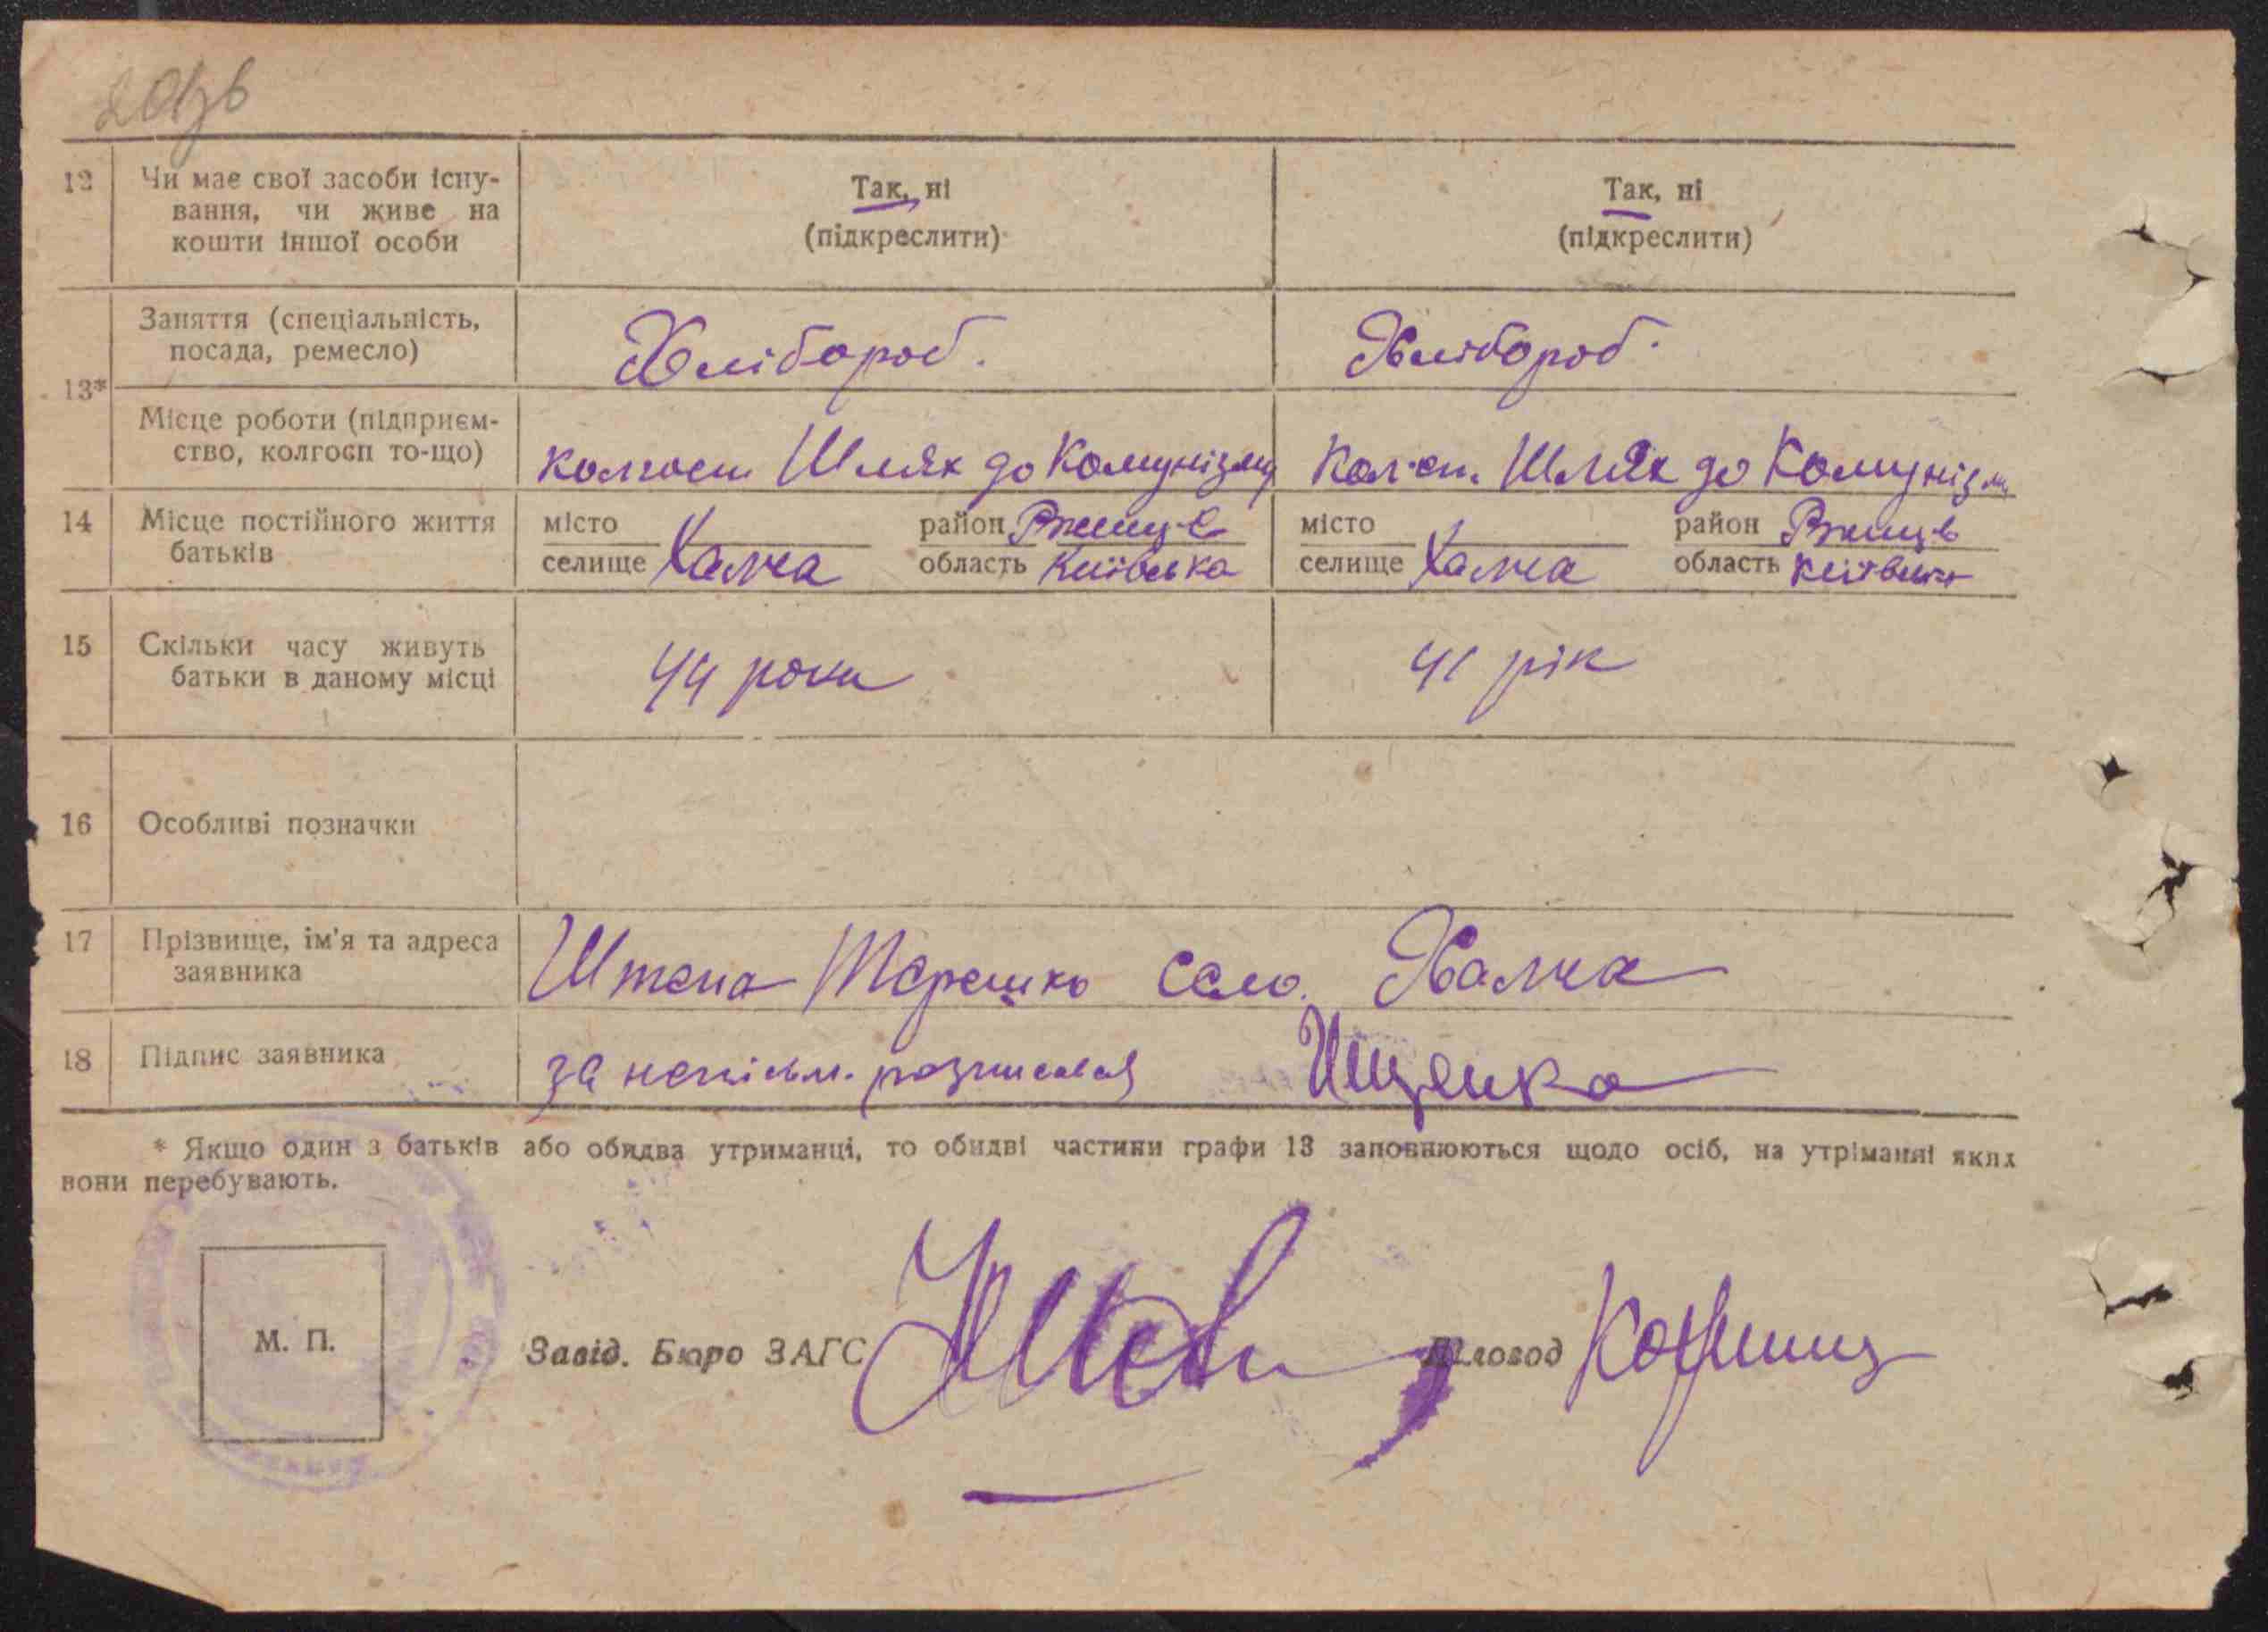 12 Чи має свої засоби існу-
вання, чи живе на
кошти іншої особи
Так, ні
(підкреслити)
Так, ні
(підкреслити)
13*
Заняття (спеціальність,
посада, ремесло)
Хлібороб.
Хлібороб.
Місце роботи (підприєм-
ство, колгосп то-що)
колгосп Шлях до Комунізму
Колгосп. Шлях до Комунізму
14 Місце постійного життя
батьків
місто
селище Халча
район Ржищів
область Київська
місто
селище Халча
район Ржищів
область Київська
15 Скільки часу живуть
батьки в даному місці
44 роки
41 рік
16 Особливі позначки
17 Прізвище, ім'я та адреса
заявника
Штепа Терешко село. Халча
18 Підпис заявника
за неписьм. розписався Ищенко
* Якщо один з батьків або обидва утриманці, то обидві частини графи 13 заповнюються щодо осіб, на утріманні яких
вони перебувають.
М. П.
Завід. Бюро ЗАГС
Діловод